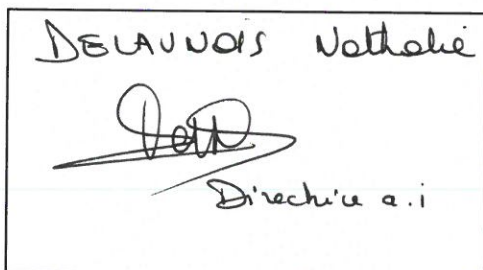 DELAUNOIS Nathalie
Directrice a.i